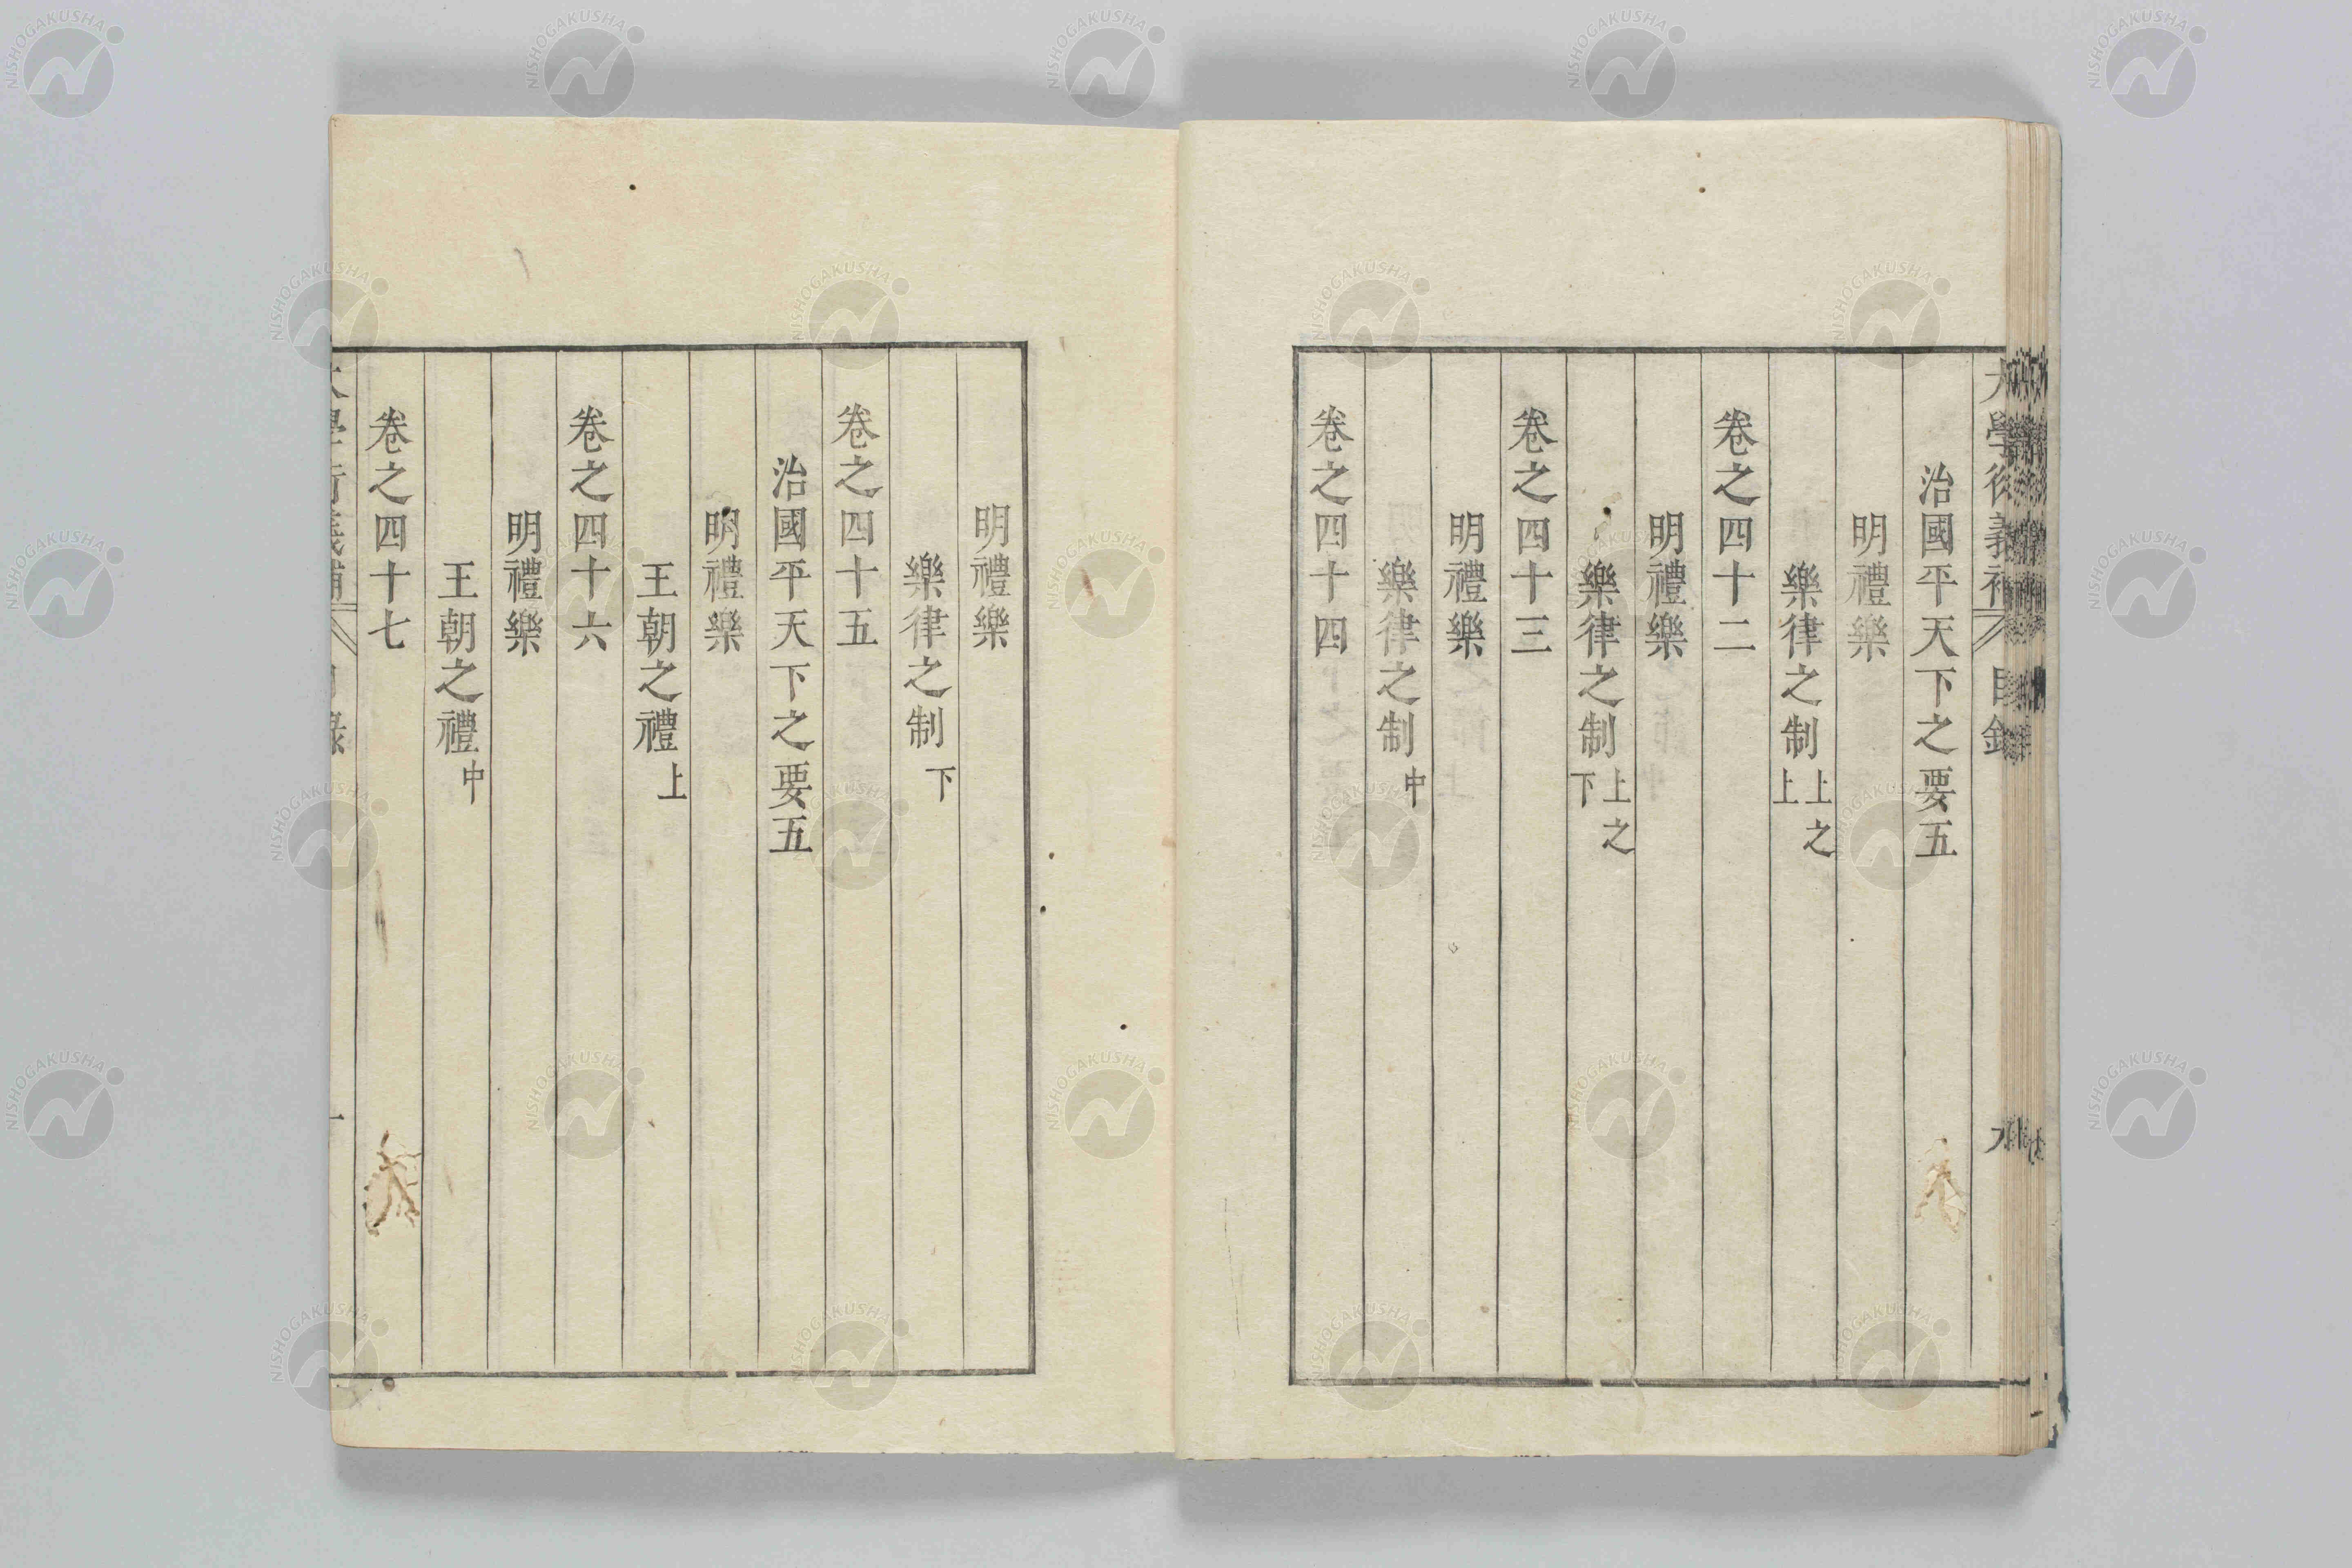 治國平天下之要五
明禮樂
樂律之制上之上
卷之四十二
明禮樂
樂律之制上之下
卷之四十三
明禮樂
樂律之制中
卷之四十四
明禮樂
樂律之制下
卷之四十五
治國平天下之要五
明禮樂
王朝之禮上
卷之四十六
明禮樂
王朝之禮中
卷之四十七
NISHOGAKUSHA